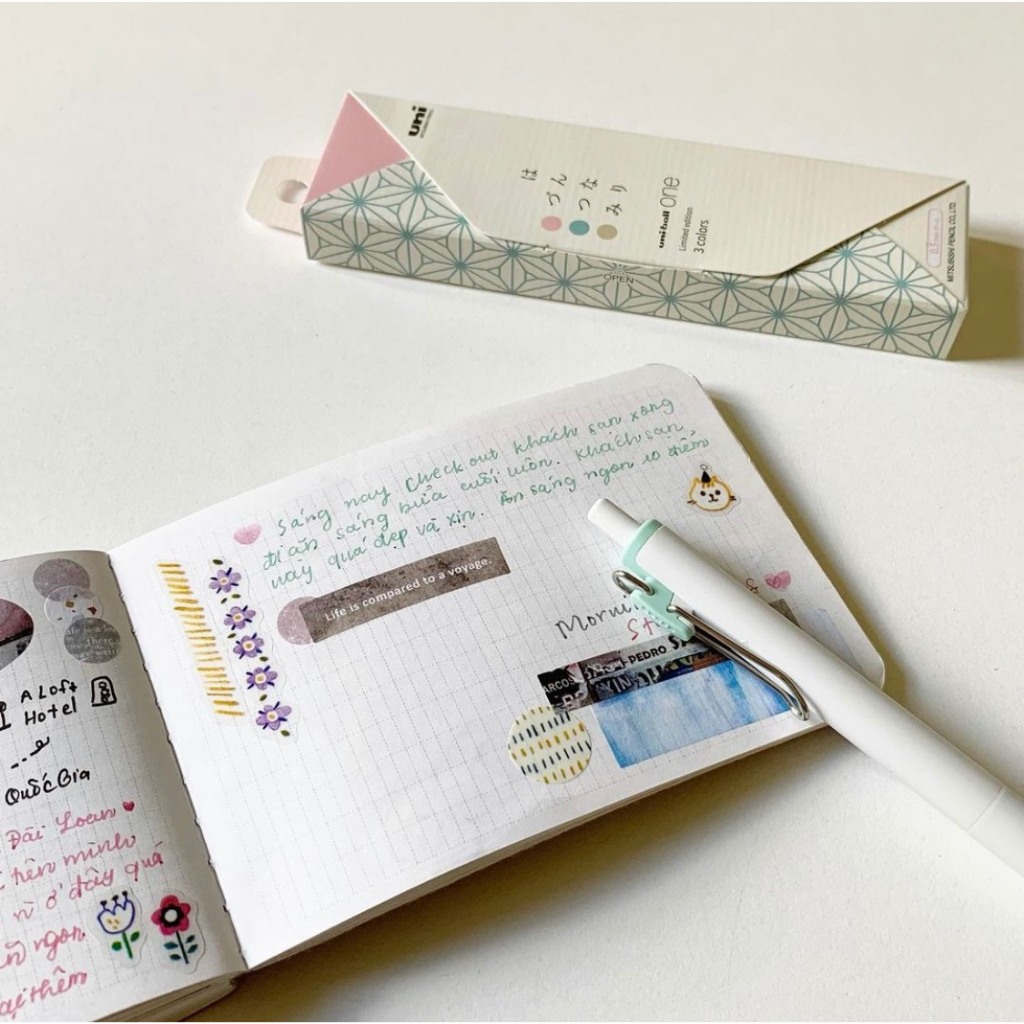 uni
は
づん
つな
みり
uni-ball one
Limited edition
3 colors
OPEN
MITSUBISHI PENCIL CO., LTD
Sáng nay check out khách sạn xong
đi ăn sáng bữa cuối luôn. Khách sạn
này quá đẹp và xịn. Ăn sáng ngon 10 điểm
Life is compared to a voyage.
ARCOS
PEDRO
A Loft
Hotel
Quốc Gia
Đài Loan
mình
ở đây quá
ngon
thêm